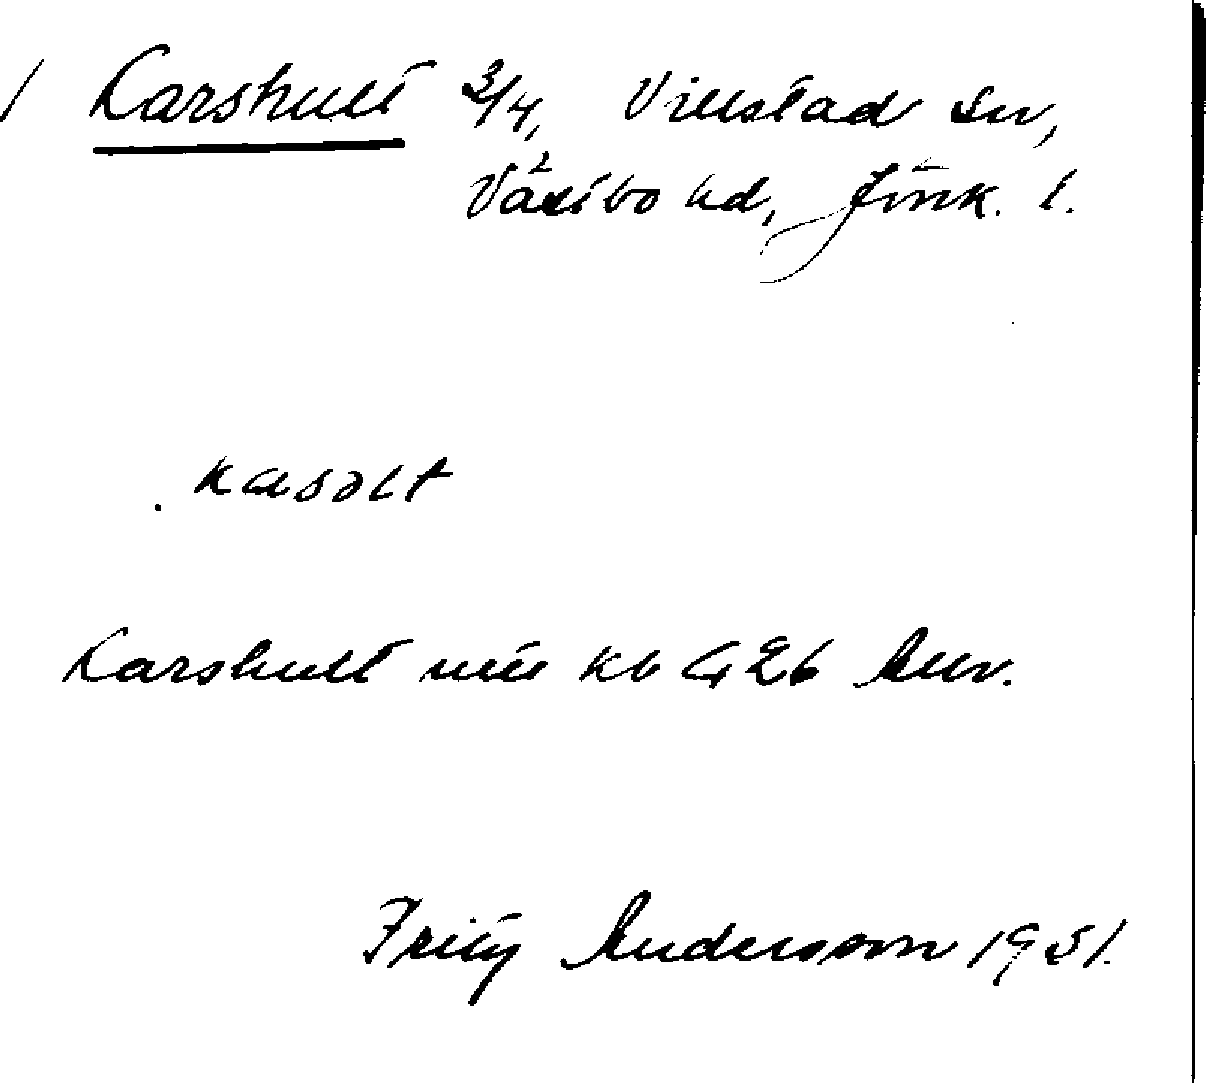 / Karshult 3/4, Villstad sn,
Västbo hd, Jönk. l.
kasəlt
Karshult
Fritz Andersson 1951.